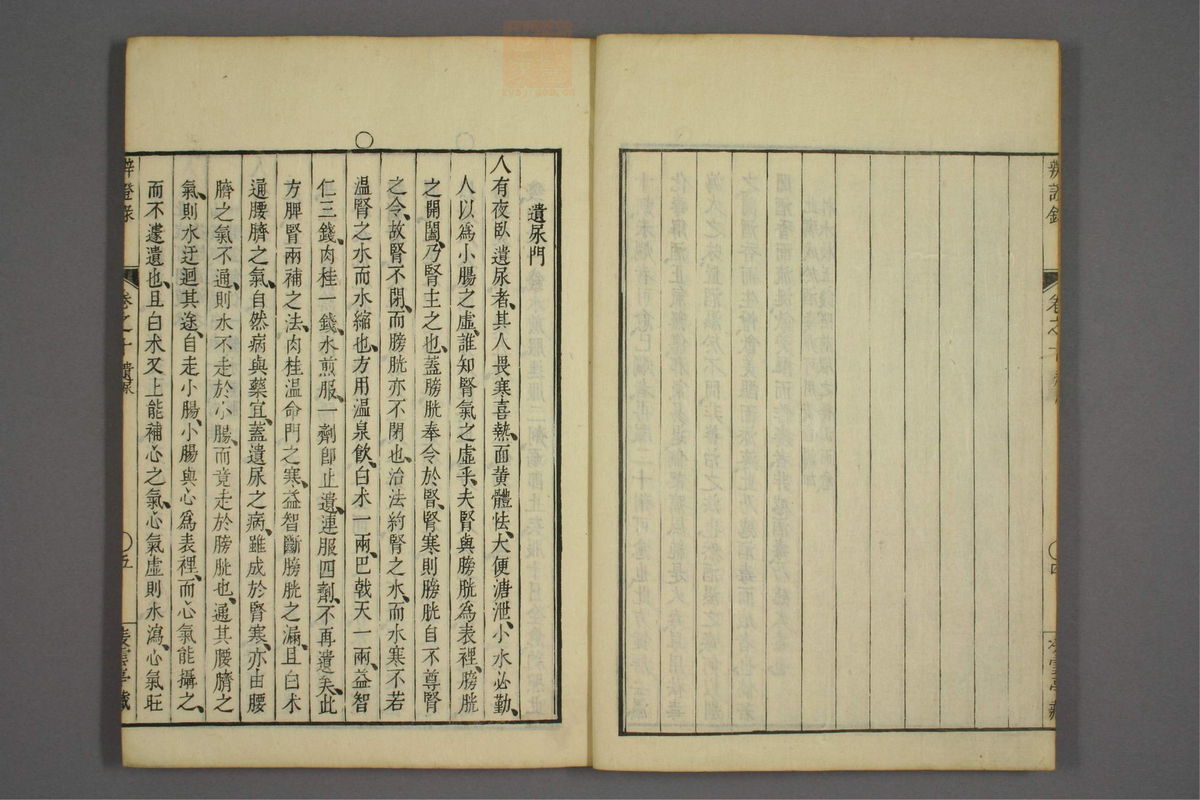 辨證錄
卷之十
遺尿門
人有夜臥遺尿者、其人畏寒喜熱、面黃體怯、大便溏泄、小水必勤、
人以爲小腸之虛、誰知腎氣之虛乎、夫腎與膀胱爲表裡、膀胱
之開闔、乃腎主之也、蓋膀胱奉令於腎、腎寒則膀胱自不尊腎
之令、故腎不閉、而膀胱亦不閉也、治法約腎之水、而水寒不若
溫腎之水而水縮也、方用溫泉飲、白术一兩、巴戟天一兩、益智
仁三錢、肉桂一錢、水煎服、一劑卽止遺、連服四劑、不再遺矣、此
方脾腎兩補之法、肉桂溫命門之寒、益智斷膀胱之漏、且白术
通腰臍之氣、自然病與藥宜、蓋遺尿之病、雖成於腎寒、亦由腰
臍之氣不通、則水不走於小腸、而竟走於膀胱也、通其腰臍之
氣、則水迂迴其途、自走小腸、小腸與心爲表裡、而心氣能攝之、
而不遽遺也、且白术又上能補心之氣、心氣虛則水瀉、心氣旺
辨證錄
卷之十
遺尿
五
凌雲亭藏